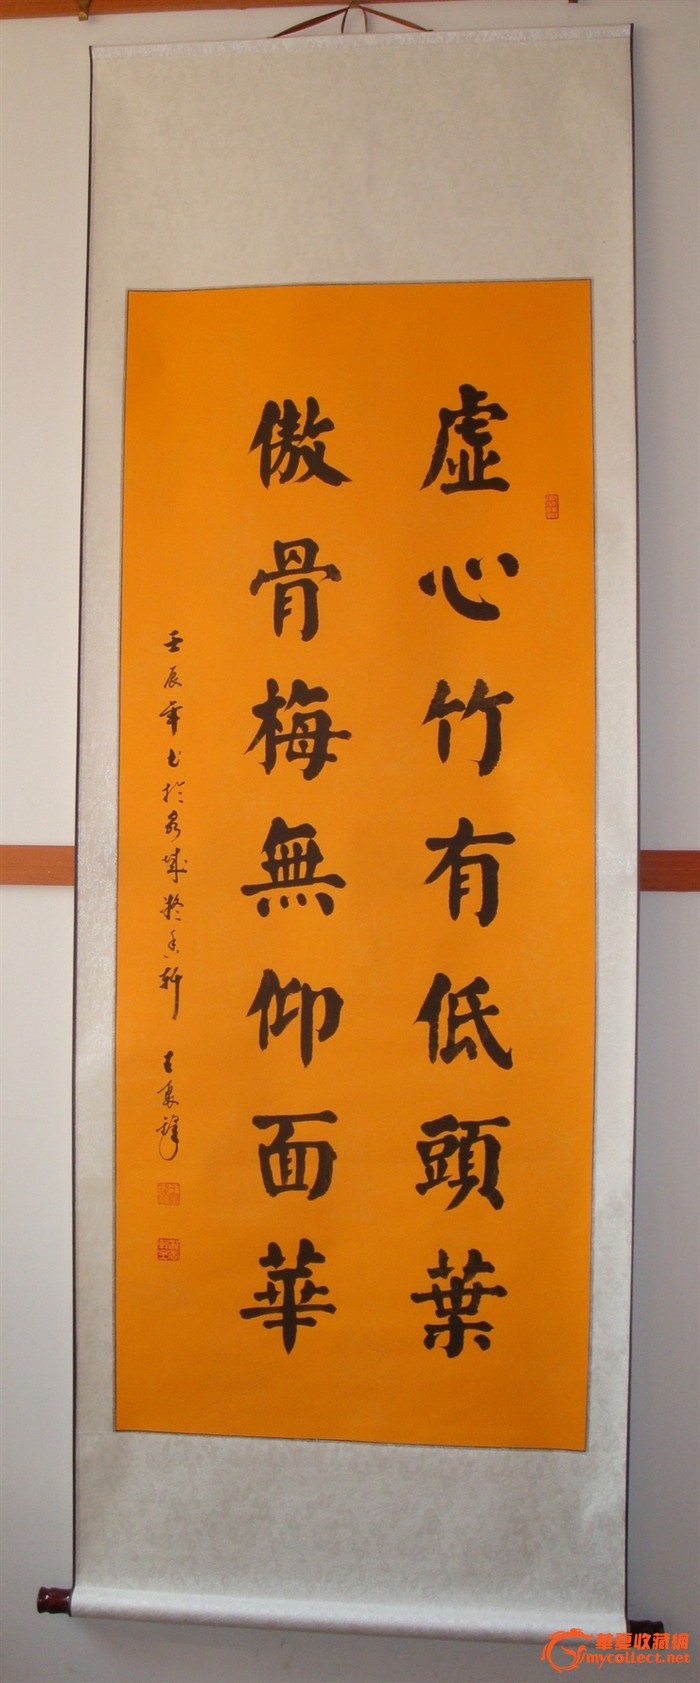 虚心竹有低頭葉
傲骨梅無仰面華
壬辰年书於泉城凝香轩
華夏收藏網
mycollect.net